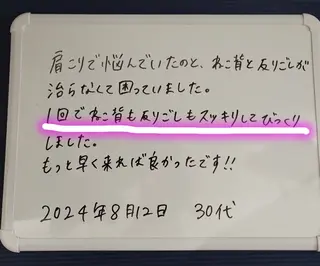 肩こりで悩んでいたのと、ねこ背と反りごしが
治らなくて困っていました。
1回でねこ背も反りごしもスッキリしてびっくり
しました。
もっと早く来れば良かったです!!
2024年8月12日 30代